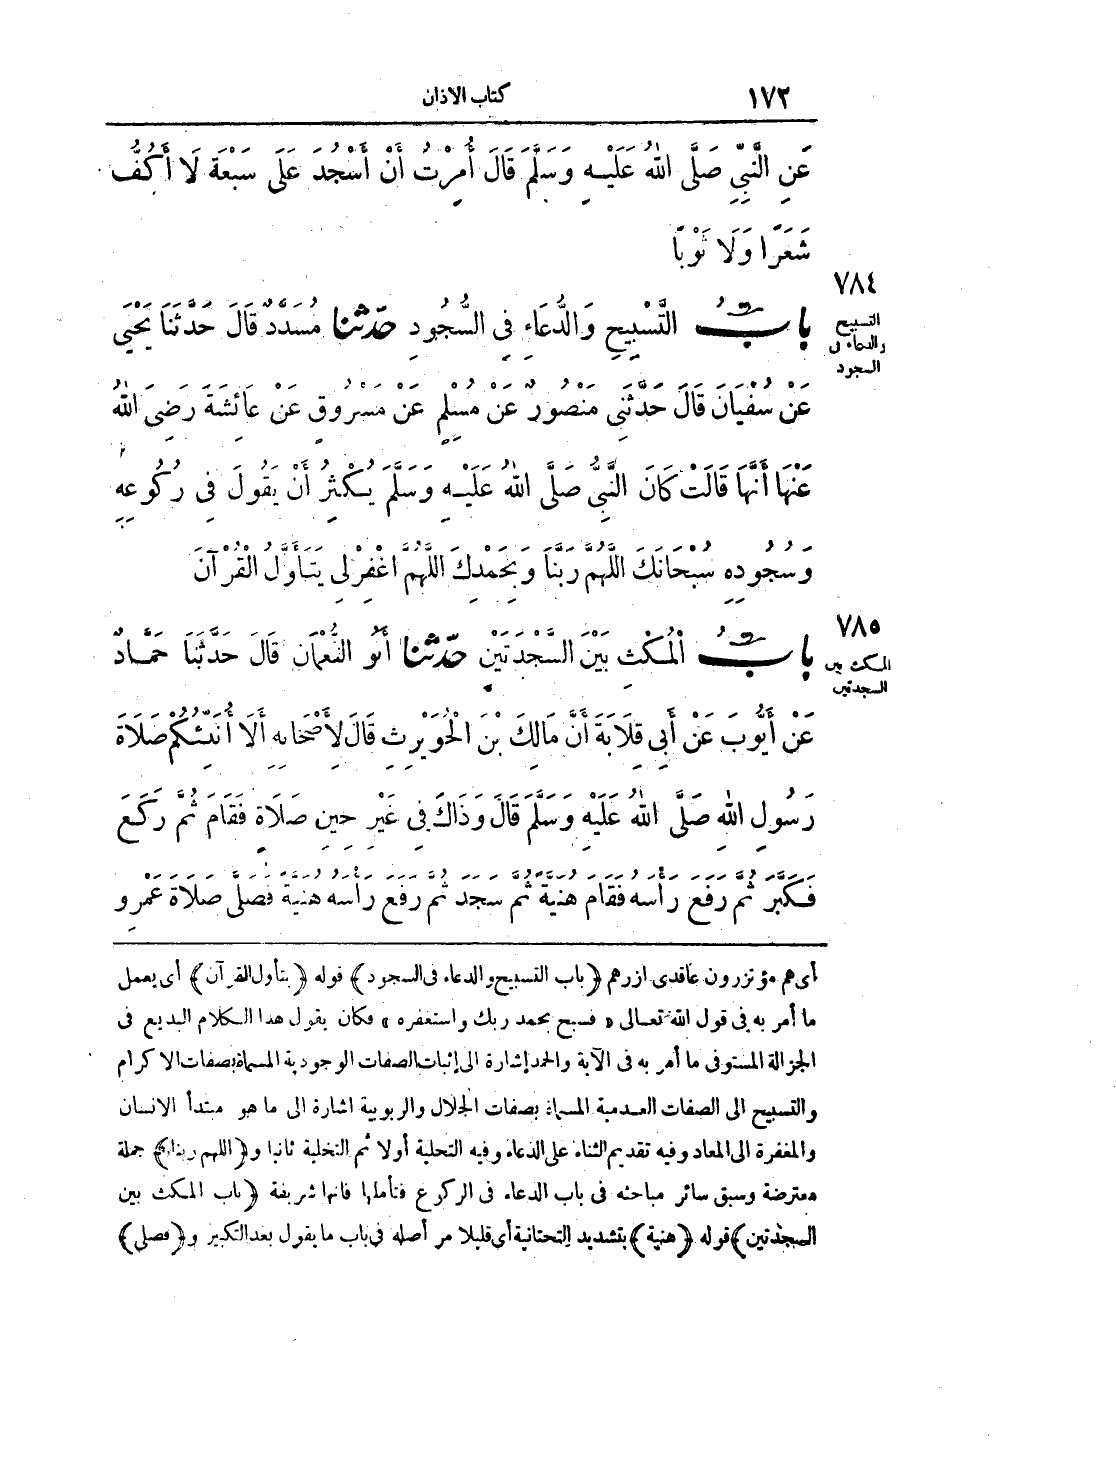 ١٧٢
كتاب الاذان
عَنِ النَّبِيِّ صَلَّى اللهُ عَلَيْهِ وَسَلَّمَ قَالَ أُمِرْتُ أَنْ أَسْجُدَ عَلَى سَبْعَةٍ لَا أَكُفُّ
شَعَرًا وَلَا ثَوْبًا
٧٨٤
التسبيح
والدعاء فى
السجود
بَابُ التَّسْبِيحِ وَالدُّعَاءِ فِي السُّجُودِ حَدّثنا مُسَدَّدٌ قَالَ حَدَّثَنَا يَحْيَى
عَنْ سُفْيَانَ قَالَ حَدَّثَنِي مَنْصُورٌ عَنْ مُسْلِمٍ عَنْ مَسْرُوقٍ عَنْ عَائِشَةَ رَضِيَ اللهُ
عَنْهَا أَنَّهَا قَالَتْ كَانَ النَّبِيُّ صَلَّى اللهُ عَلَيْهِ وَسَلَّمَ يُكْثِرُ أَنْ يَقُولَ فِي رُكُوعِهِ
وَسُجُودِهِ سُبْحَانَكَ اللَّهُمَّ رَبَّنَا وَبِحَمْدِكَ اللَّهُمَّ اغْفِرْلِي يَتَأَوَّلُ الْقُرْآنَ
٧٨٥
المكث بين
السجدتين
بَابُ الْمُكْثِ بَيْنَ السَّجْدَتَيْنِ حَدّثنا أَبُو النُّعْمَانِ قَالَ حَدَّثَنَا حَمَّادٌ
عَنْ أَيُّوبَ عَنْ أَبِي قِلَابَةَ أَنَّ مَالِكَ بْنَ الْحُوَيْرِثِ قَالَ لِأَصْحَابِهِ أَلَا أُنَبِّئُكُمْ صَلَاةَ
رَسُولِ اللهِ صَلَّى اللهُ عَلَيْهِ وَسَلَّمَ قَالَ وَذَاكَ فِي غَيْرِ حِينِ صَلَاةٍ فَقَامَ ثُمَّ رَكَعَ
فَكَبَّرَ ثُمَّ رَفَعَ رَأْسَهُ فَقَامَ هُنَيَّةً ثُمَّ سَجَدَ ثُمَّ رَفَعَ رَأْسَهُ هُنَيَّةً فَصَلَّى صَلَاةَ عَمْرِو
أى هم مؤتزرون عاقدى ازرهم ﴿باب التسبيح والدعاء فى السجود﴾ قوله ﴿يتأول القرآن﴾ أى يعمل
ما أمر به فى قول الله تعالى «فسبح بحمد ربك واستغفره» فكان يقول هذا الكلام البديع فى
الجزالة المستوفى ما أمر به فى الآية والحمد إشارة الى إثبات الصفات الوجودية المسماة بصفات الاكرام
والتسبيح الى الصفات العدمية المسماة بصفات الجلال والربوبية اشارة الى ما هو مبتدأ الانسان
والمغفرة الى المعاد وفيه تقديم الثناء على الدعاء وفيه التحلية أولا ثم التخلية ثانيا و﴿اللهم ربنا﴾ جملة
معترضة وسبق سائر مباحثه فى باب الدعاء فى الركوع فتأملها فانها شريفة ﴿باب المكث بين
السجدتين﴾ قوله ﴿هنية﴾ بتشديد التحتانية أى قليلا مر أصله فى باب ما يقول بعد التكبير و﴿فصلى﴾